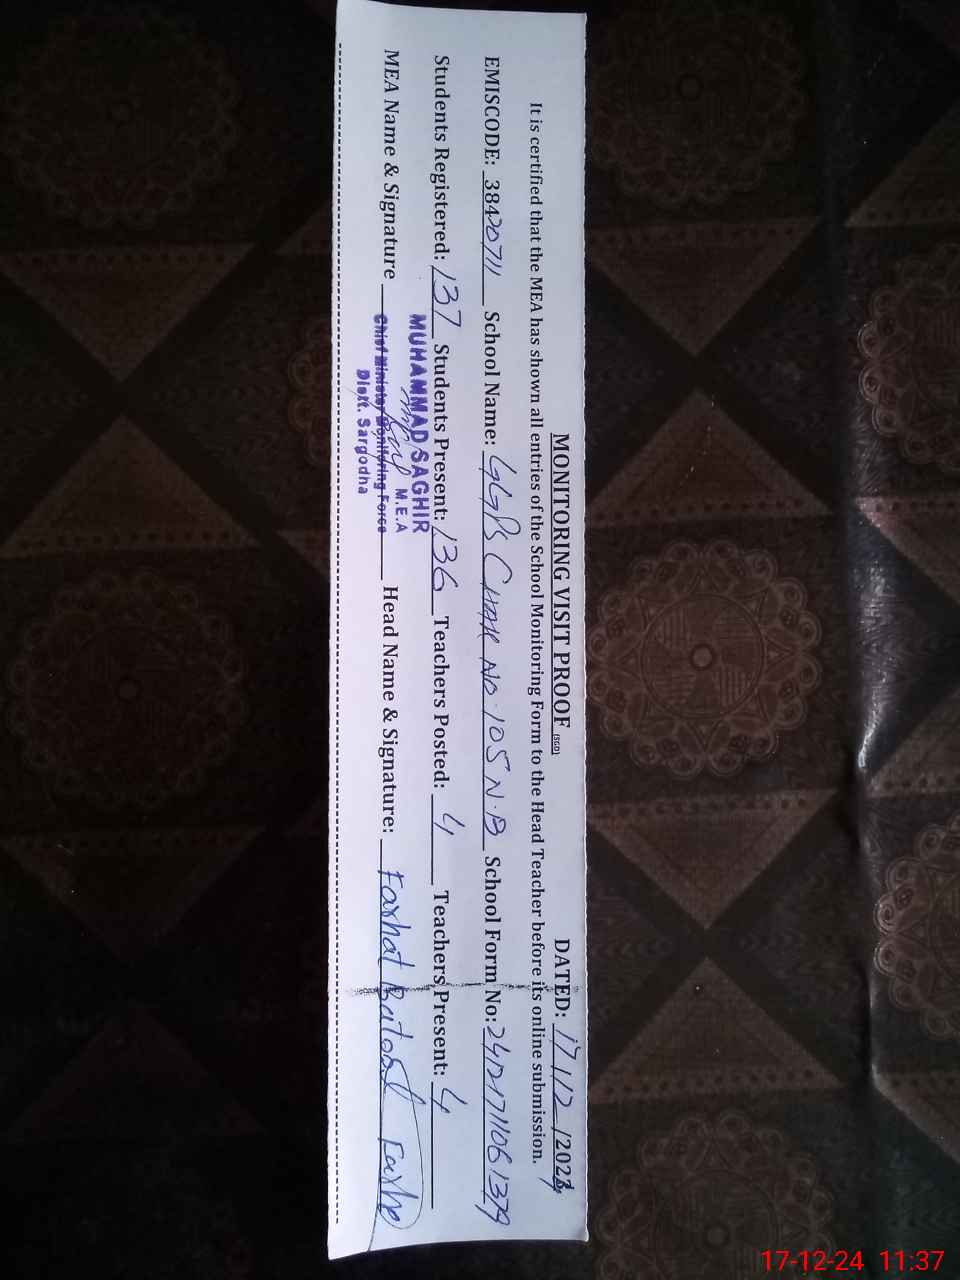 MONITORING VISIT PROOF (SGD) DATED: 17/12/2024
It is certified that the MEA has shown all entries of the School Monitoring Form to the Head Teacher before its online submission.
EMISCODE: 38420711 School Name: GGPS CHAK NO. 105 N.B School Form No: 24121711061379
Students Registered: 137 Students Present: 136 Teachers Posted: 4 Teachers Present: 4
MEA Name & Signature Head Name & Signature: Farhat Batool
MUHAMMAD SAGHIR
M.E.A
Chief Minister Monitoring Force
Distt. Sargodha
17-12-24 11:37